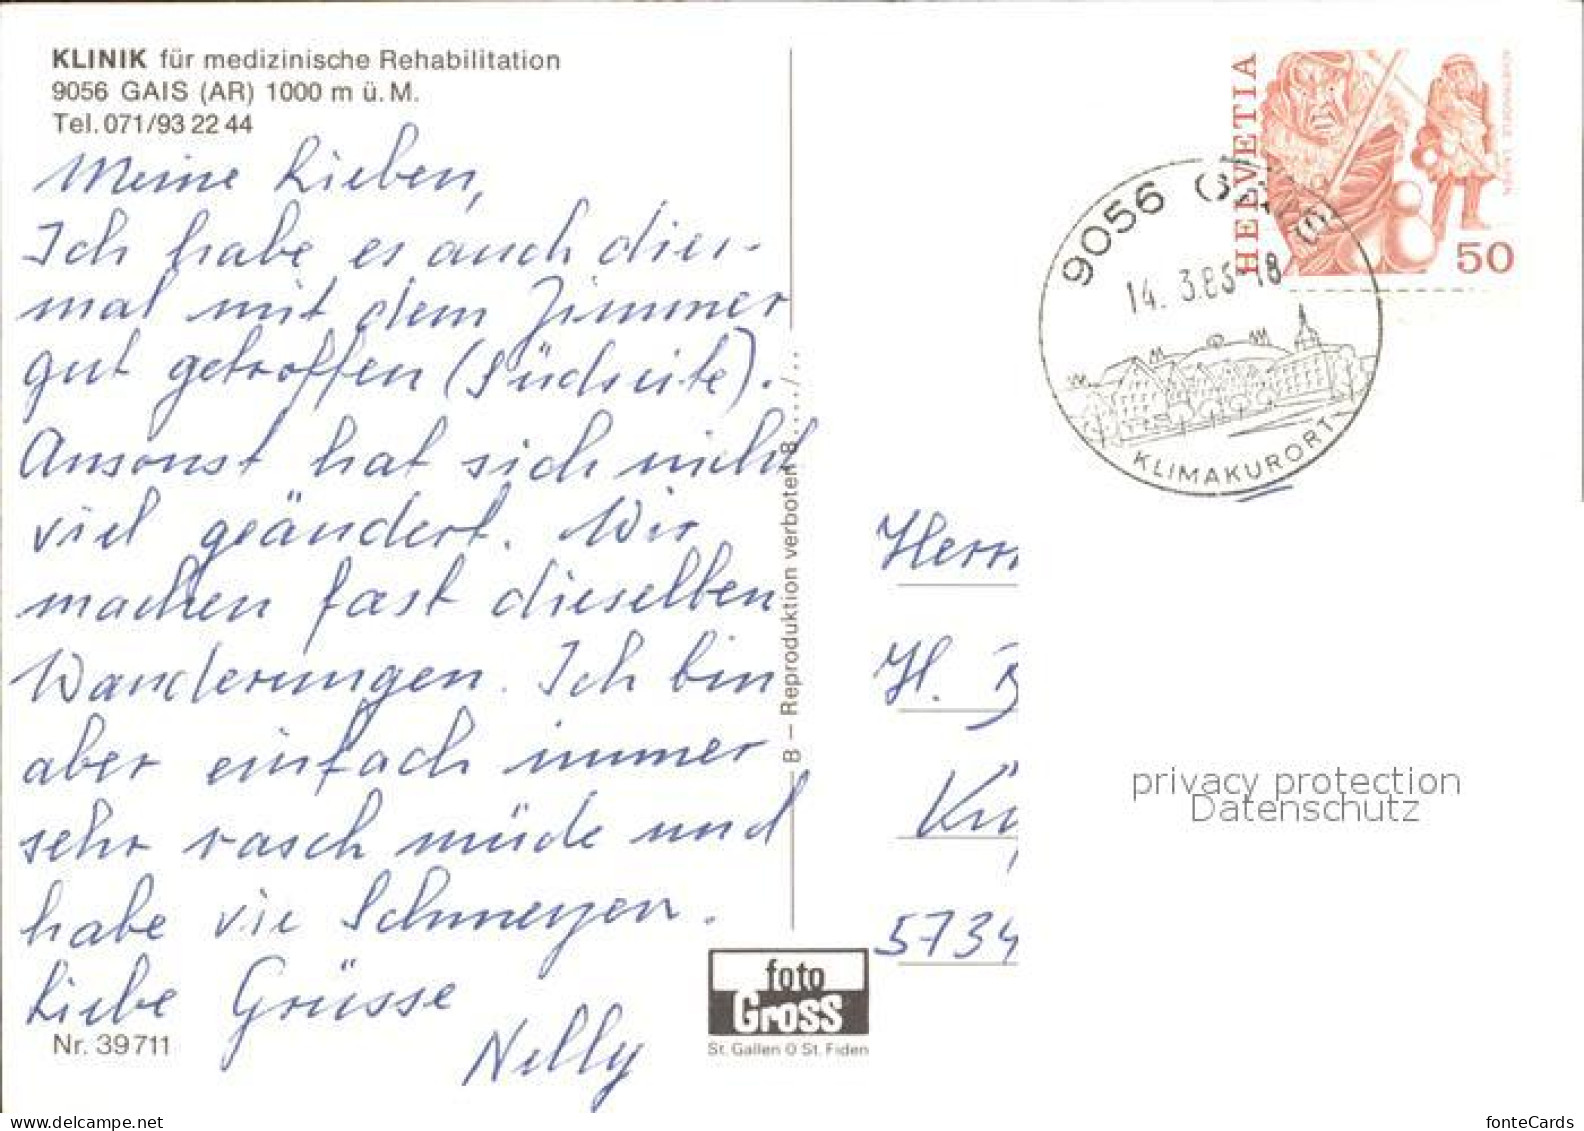 KLINIK für medizinische Rehabilitation
9056 GAIS (AR) 1000 m ü. M.
Tel. 071/93 22 44
Meine Lieben,
Ich habe es auch dies-
mal mit dem Zimmer
gut getroffen (Südseite).
Ansonst hat sich nicht
viel geändert. Wir
machen fast dieselben
Wanderungen. Ich bin
aber einfach immer
sehr rasch müde und
habe vie Schmerzen.
Liebe Grüsse
Nelly
Nr. 39711
B – Reproduktion verboten 8..../..
foto
Gross
St. Gallen O St. Fiden
HELVETIA
50
9056
14. 3.85-18
KLIMAKURORT
Herrn
H.
5734
privacy protection
Datenschutz
www.delcampe.net
fonteCards